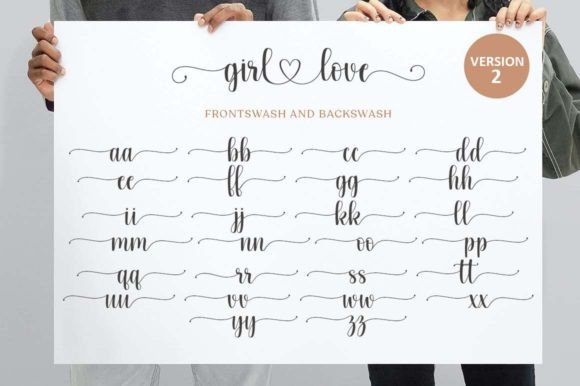 girl love
VERSION
2
FRONTSWASH AND BACKSWASH
aa bb cc dd
ee ff gg hh
ii jj kk ll
mm nn oo pp
qq rr ss tt
uu vv ww xx
yy zz